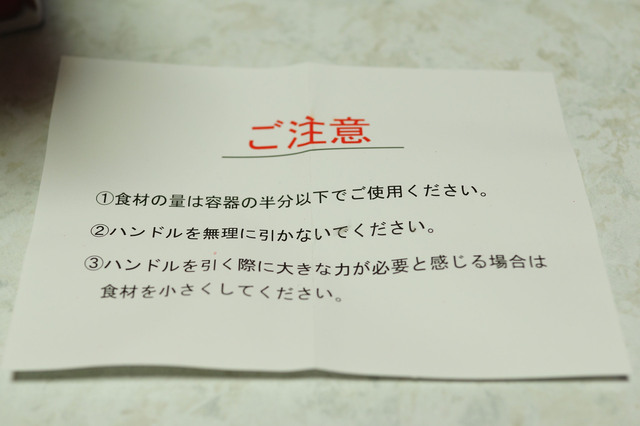 ご注意
①食材の量は容器の半分以下でご使用ください。
②ハンドルを無理に引かないでください。
③ハンドルを引く際に大きな力が必要と感じる場合は
食材を小さくしてください。